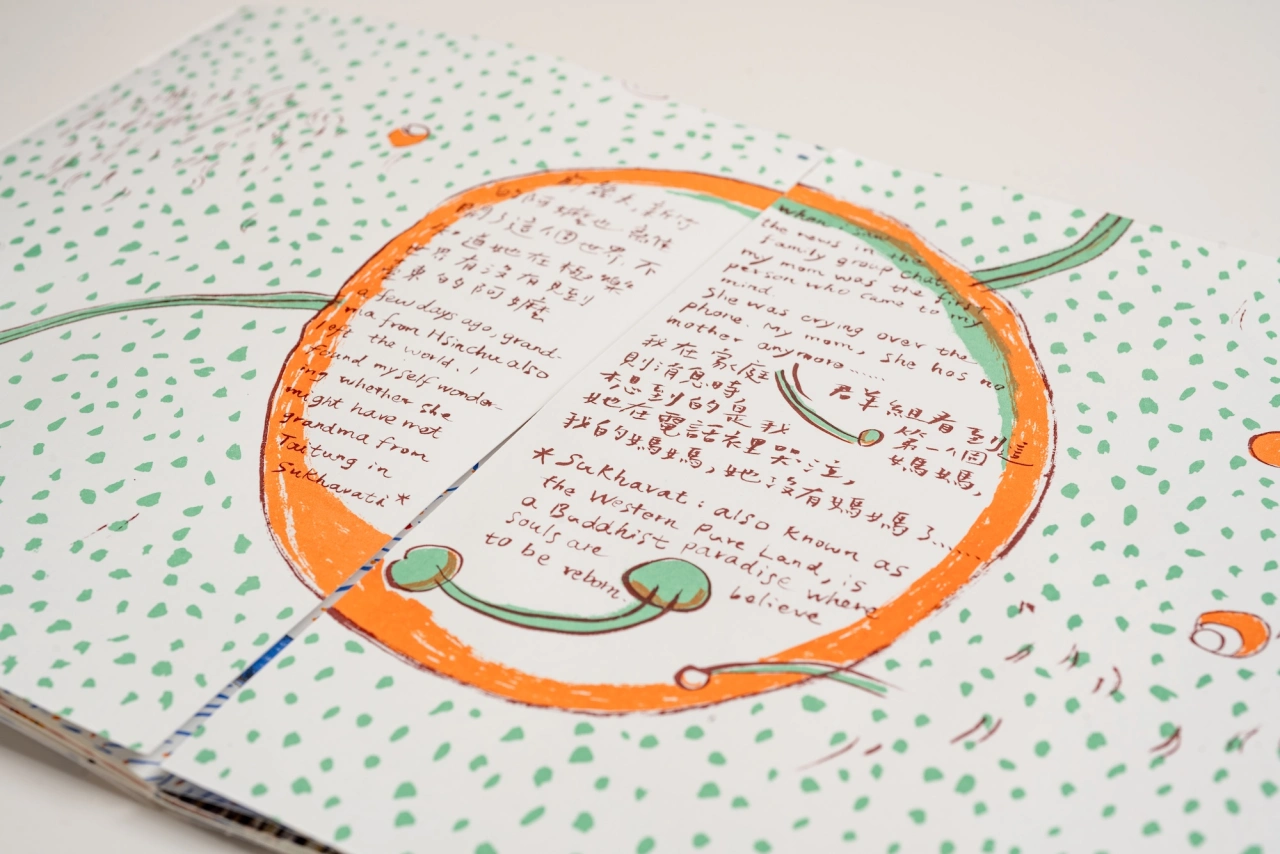 前幾天,新竹
的阿嬤也離開
了這個世界,不
知道她在極樂
世界有沒有見到
台東的阿嬤
a few days ago, grand-
ma from Hsinchu also
left the world. I
found myself wonder-
ing whether she
might have met
grandma from
Taitung in
Sukhavati *
when I saw
the news in the
family group chat,
my mom was the first
person who came to my
mind.
She was crying over the
phone. My mom, she has no
mother anymore.....
我在家庭 群組看到
則消息時 第一個
想到的是我 媽媽,
她在電話裡哭泣,
我的媽媽,她沒有媽媽了......
* Sukhavat: also known as
the Western Pure Land, is
a Buddhist paradise where
souls are believe
to be reborn